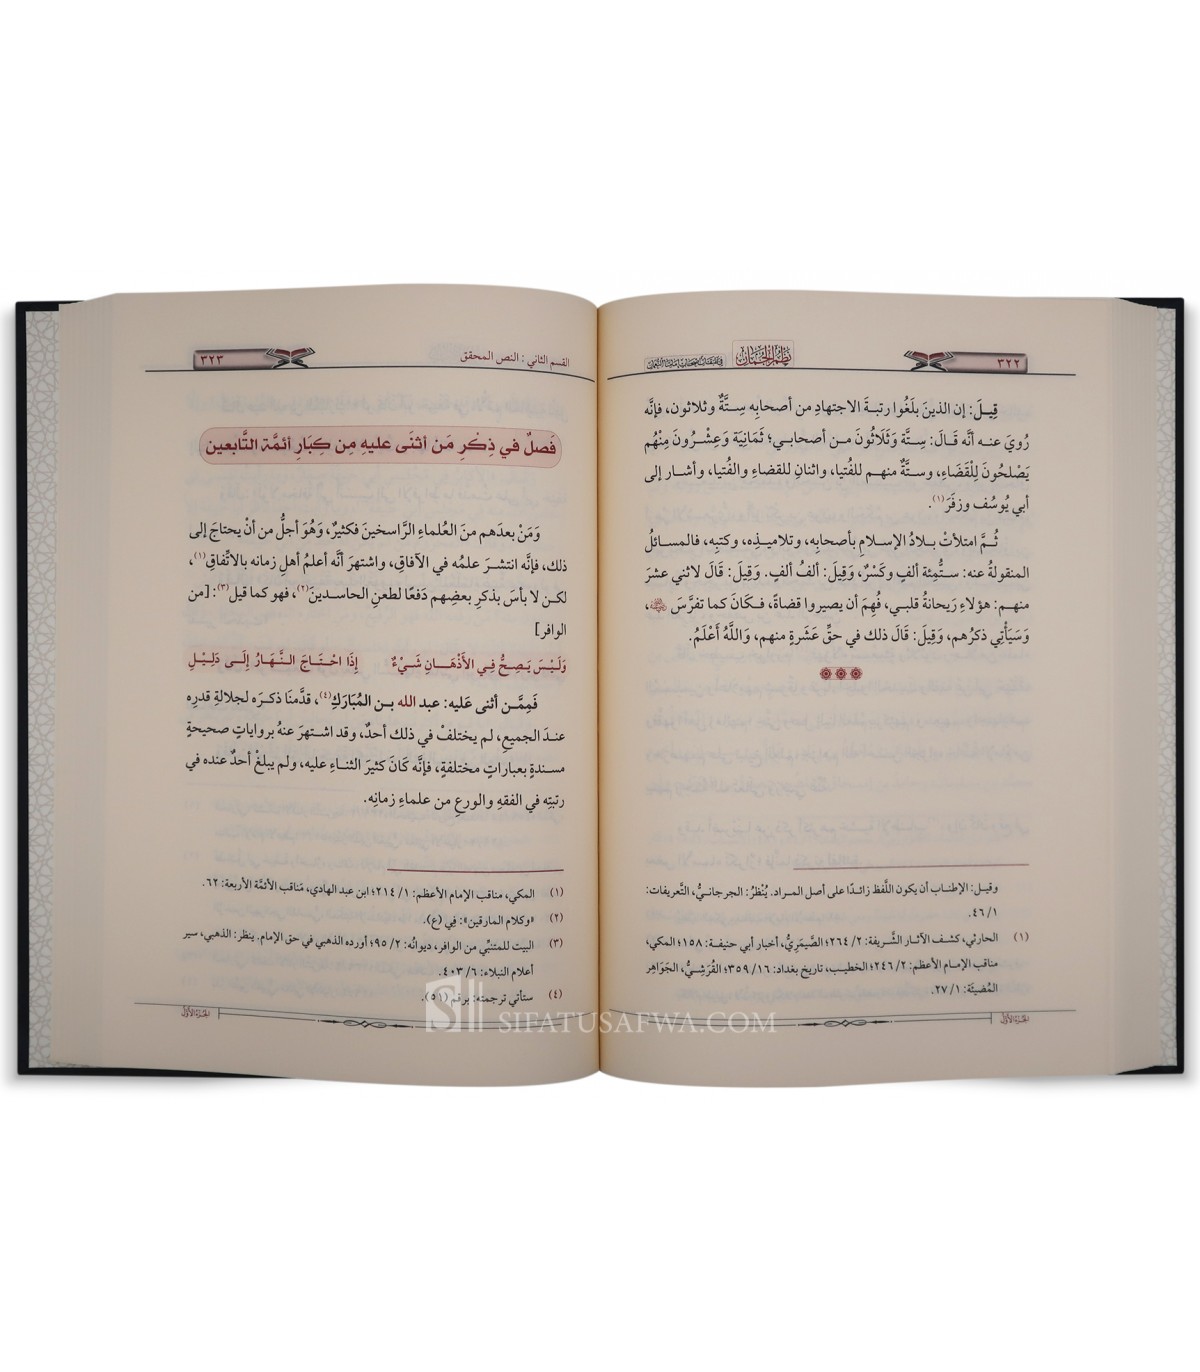 ٣٢٢
نظم الجمان
قِيلَ: إن الذينَ بلَغُوا رتبةَ الاجتهادِ من أصحابِه سِتَّةٌ وثلاثون، فإنَّه
رُويَ عنه أنَّه قَالَ: سِتَّة وَثَلَاثُونَ من أصحابي؛ ثَمَانِيَة وَعِشْرُونَ مِنْهُم
يَصْلحُونَ لِلْقَضَاءِ، وستَّةٌ منهم للفُتيا، واثنانِ للقضاءِ والفُتيا، وأشار إلى
أبي يُوسُف وزفَرَ(١).
ثُمَّ امتلأتْ بلادُ الإسلامِ بأصحابِه، وتلاميذِه، وكتبِه، فالمسائلُ
المنقولةُ عنه: ستُّمِئة ألفٍ وكَسْرٌ، وَقِيلَ: ألفُ ألفٍ. وَقِيلَ: قَالَ لاثني عشرَ
منهم: هؤلاءِ رَيحانةُ قلبي، فُهِمَ أن يصيروا قضاةً، فكَانَ كما تفرَّسَ ،
وَسَيَأْتِي ذكرُهم، وَقِيلَ: قَالَ ذلك في حقِّ عَشَرةٍ منهم، وَاللَّهُ أَعْلَمُ.
وقيل: الإطناب أن يكون اللَّفظ زائدًا على أصل المراد. يُنْظَرُ: الجرجانيُّ، التَّعريفات:
١/ ٤٦.
(١) الحارثي، كشف الآثار الشَّريفة: ٢/ ٢٦٤؛ الصَّيمَريُّ، أخبار أبي حنيفة: ١٥٨؛ المكي،
مناقب الإمام الأعظم: ٢/ ٢٤٦؛ الخطيب، تاريخ بغداد: ١٦/ ٣٥٩؛ القُرَشِيُّ، الجَوَاهِر
المُضيئَة: ١/ ٢٧.
الجزء الأول
القسم الثاني: النص المحقق
٣٢٣
فَصلٌ في ذِكْرِ مَن أثنَى عليهِ مِن كِبَارِ أئمَّة التَّابعين
وَمَنْ بعدَهم منَ العُلماءِ الرَّاسخينَ فكثيرٌ، وَهُوَ أجلُّ من أنْ يحتاجَ إلى
ذلك، فإنَّه انتشرَ علمُه في الآفاقِ، واشتهرَ أنَّه أعلمُ أهلِ زمانه بالاتِّفاقِ(١)،
لكن لا بأسَ بذكرِ بعضِهم دَفعًا لطعنِ الحاسدينَ(٢)، فهو كما قيل(٣): [من
الوافر]
وَلَيْسَ يَصِحُّ فِي الأَذْهَانِ شَيْءٌ إِذَا احْتَاجَ النَّهَارُ إِلَى دَلِيْلِ
فَمِمَّن أثنى عَليه: عبد الله بن المُبَارَكِ(٤)، قدَّمنَا ذكرَه لجلالةِ قدرِه
عندَ الجميعِ، لم يختلفْ في ذلك أحدٌ، وقد اشتهرَ عنهُ برواياتٍ صحيحةٍ
مسندةٍ بعباراتٍ مختلفةٍ، فإنَّه كَانَ كثيرَ الثناءِ عليه، ولم يبلغْ أحدٌ عنده في
رتبتِه في الفقهِ والورعِ من علماءِ زمانِه.
(١) المكي، مناقب الإمام الأعظم: ١/ ٢١٤؛ ابن عبد الهادي، مَناقب الأئمَّة الأربعة: ٦٢.
(٢) «وكلام المارقين»: فِي (ع).
(٣) البيت للمتنبِّي من الوافر، ديوانُه: ٢/ ٩٥؛ أورده الذهبي في حق الإمام. ينظر: الذهبي، سير
أعلام النبلاء: ٦/ ٤٠٣.
(٤) ستأتي ترجمته: برقم (٥١).
الجزء الأول
SIFATUSAFWA.COM